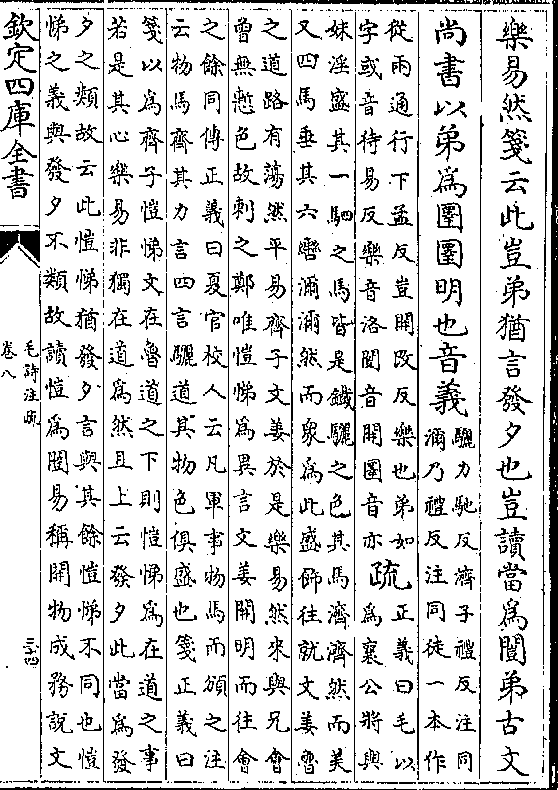 樂易然箋云此豈弟猶言發夕也豈讀當爲闓弟古文
尚書以弟爲圛圛明也音義
驪力馳反濟子禮反注同
瀰乃禮反注同徒一本作
從兩通行下孟反豈開改反樂也弟如
字或音待易反樂音洛闓音開圛音亦
疏
正義曰毛以
爲襄公將與
妹淫盛其一駟之馬皆是鐵驪之色其馬濟濟然而美
又四馬垂其六轡瀰瀰然而衆爲此盛飾往就文姜魯
之道路有蕩然平易齊子文姜於是樂易然來與兄會
曾無慙色故刺之鄭唯愷悌爲異言文姜開明而往會
之餘同傳正義曰夏官校人云凡軍事物馬而頒之注
云物馬齊其力言四言驪道其物色俱盛也箋正義曰
箋以爲齊子愷悌文在魯道之下則愷悌爲在道之事
若是其心樂易非獨在道爲然且上云發夕此當爲發
夕之類故云此愷悌猶發夕言與其餘愷悌不同也愷
悌之義與發夕不類故讀愷爲闓易稱開物成務說文
欽定四庫全書
毛詩注疏
卷八
三四